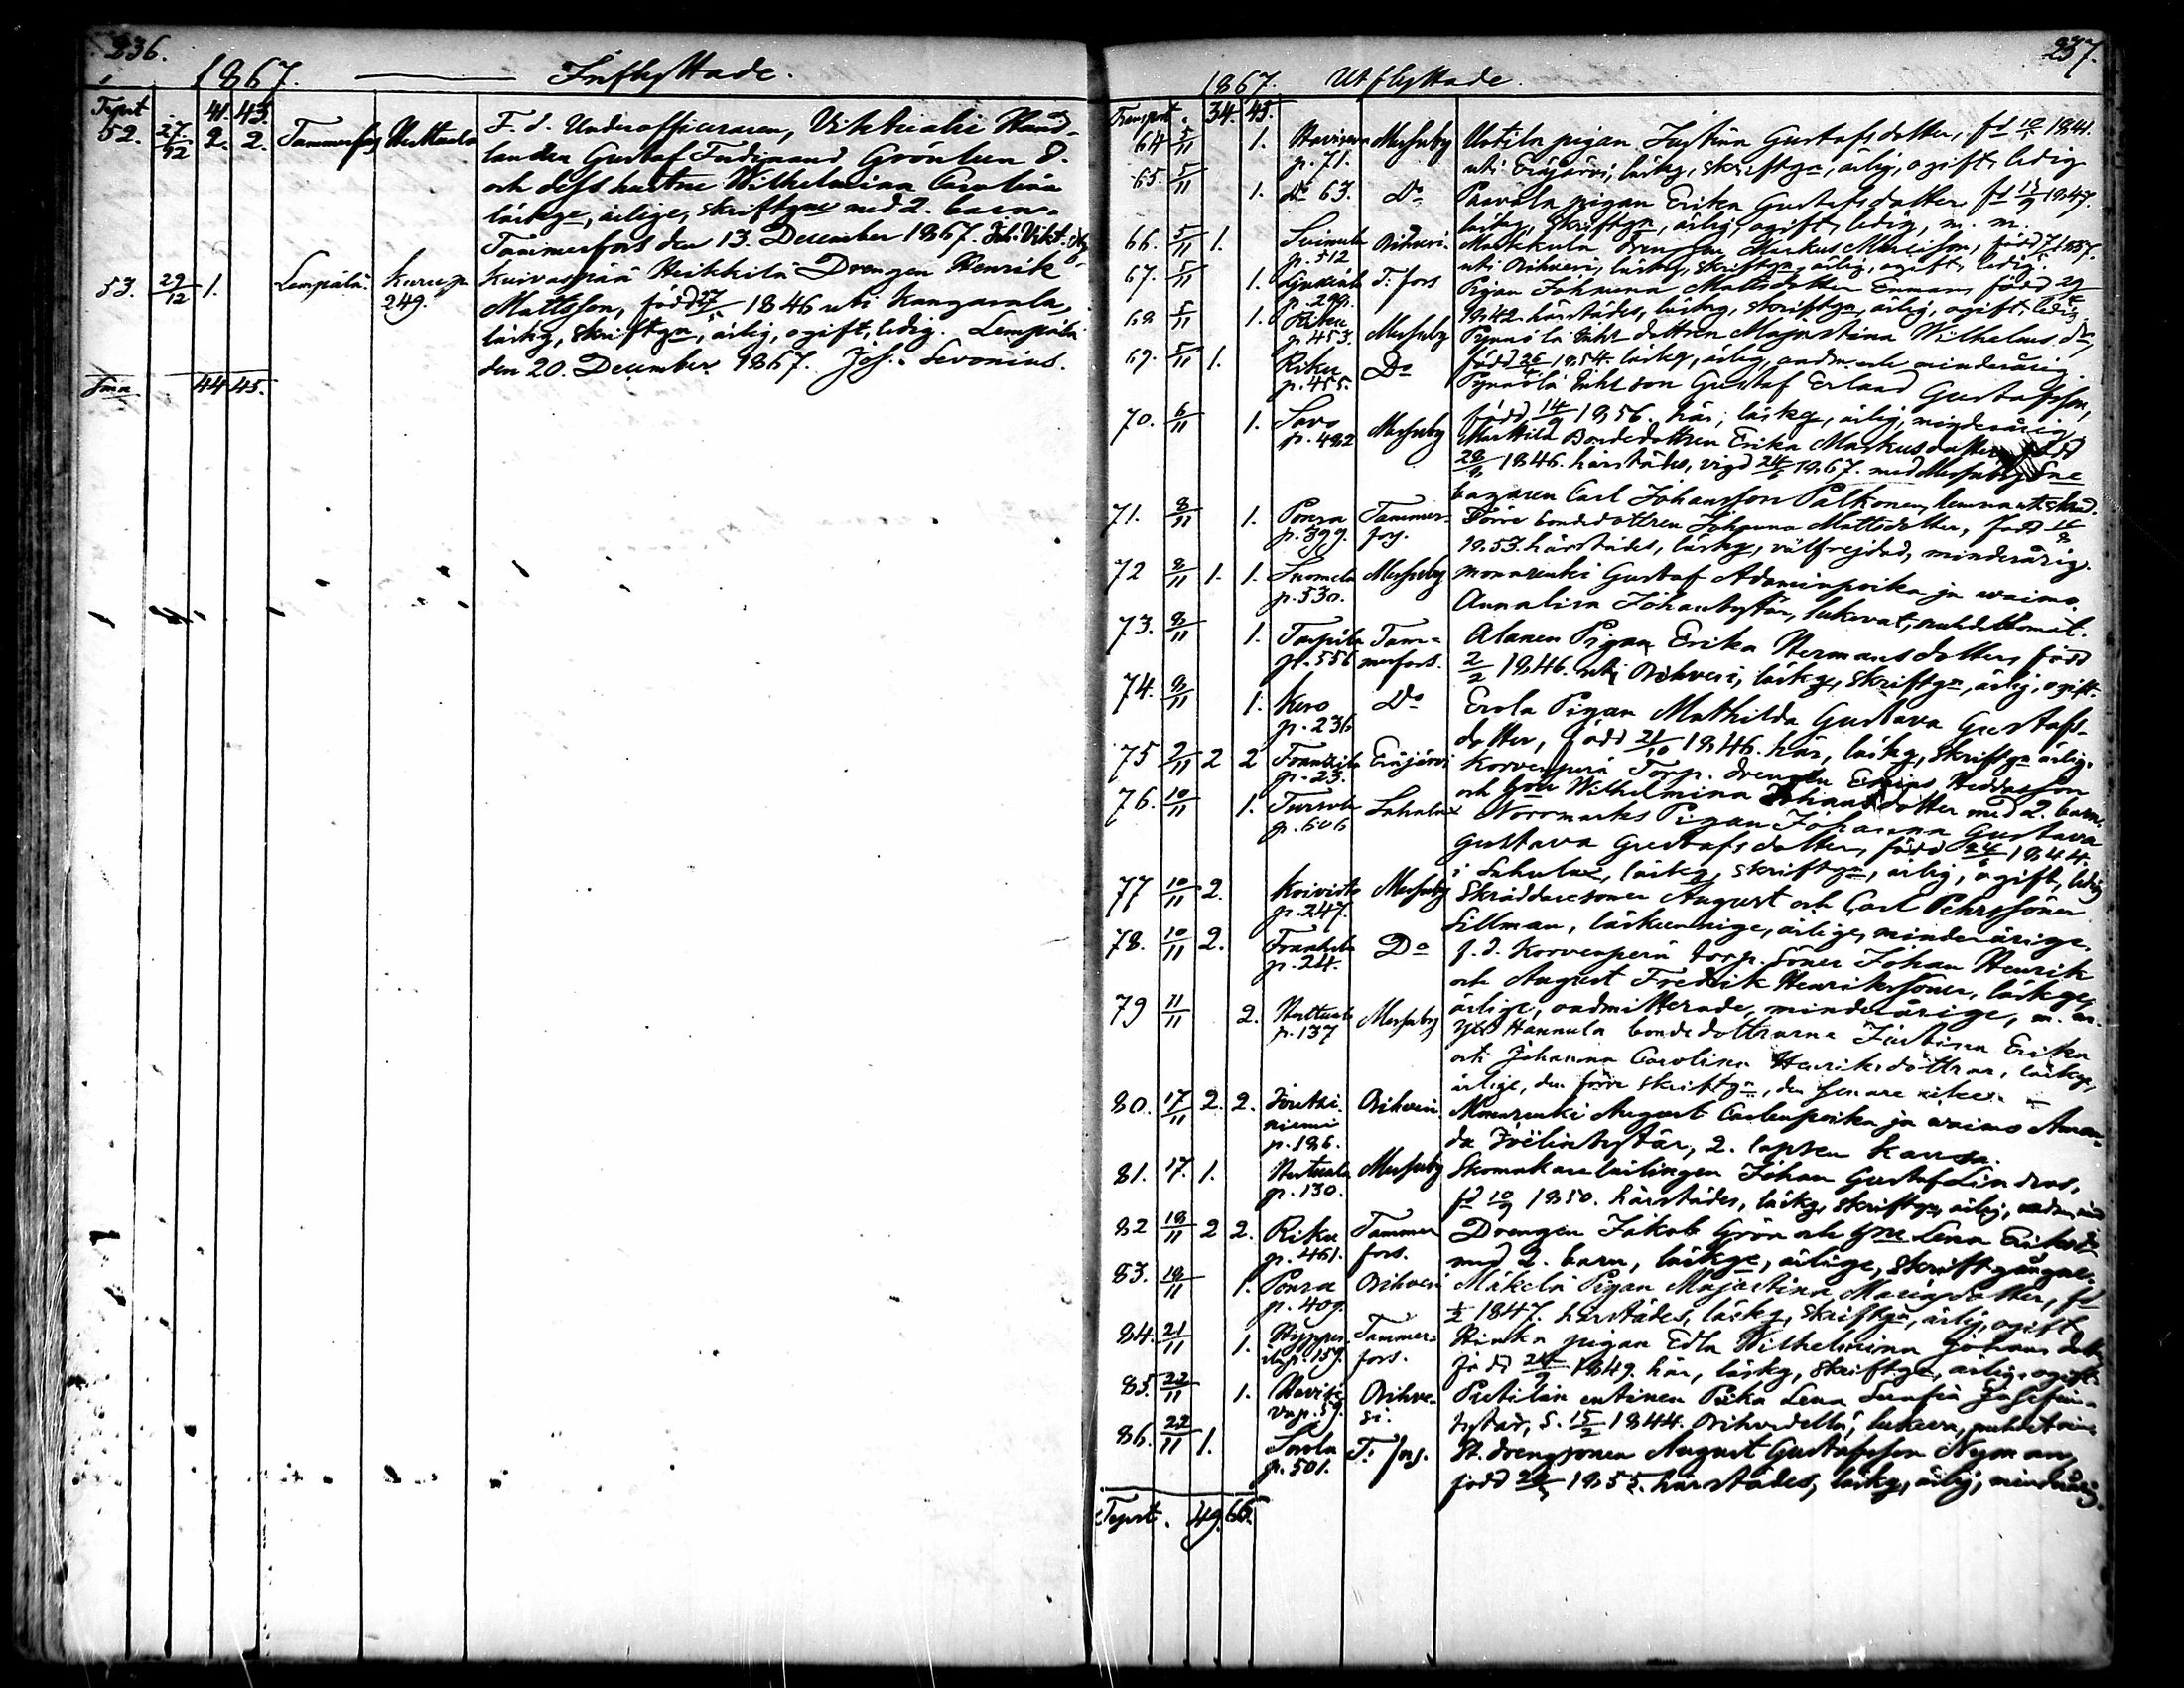 236.
1867. Inflyttade.
Tsprt 41. 43.
52. 27/12 2. 2. Tammerfors Huttula F. d. Underofficeraren, Viktualie Hand-
landen Gustaf Ferdinand Grönlun d.
och dess hustru Wilhelmina Carolina
läskge, ärlige, skriftgne med 2. barn.
Tammerfors den 13. December 1867. Joh. Vikt.
53. 29/12 1. Lempälä. Kuru p. 249. Kuivaspää Heikkilä Drengen Henrik
Mattsson, född 27/5 1846 uti Kangasala,
läskg, skriftgn, ärlig, ogift, ledig. Lempälä
den 20. December 1867. Joh. Sevonius.
Sma 44 45.
237.
1867. Utflyttade.
Transport. 34. 45.
64 5/11 1. p. 71. Messuby Uotila pigan Justina Gustafsdotter, fd 1841.
uti Eräjärvi, läskg, skriftgn, ärlig, ogift, ledig
65. 5/11 1. Do 63. Do Paavola pigan Erika Gustafsdotter fd 1847.
läskg, skriftgn, ärlig, ogift, ledig, m. m.
66. 5/11 1. p. 512 Orihvesi Markkula drengen Markus
uti Orihvesi, läskg, skriftgn, ärlig, ogift, ledig.
67. 5/11 1. T. fors Pigan Johanna Mattsdotter Enman, född
1842 härstädes, läskg, skriftgn, ärlig, ogift, ledig.
68 5/11 1. Riku p. 453. Messuby Pynnölä Inhs dottren Majastina Wilhelms dr,
född 26/4 1854. läskg, ärlig, oadm. och minderårig.
69. 5/11 1. Riku p. 455. Do Pynnölä Inhs son Gustaf Erland Gustafsson,
född 14/9 1856. här, läskg, ärlig, minderårig,
70. 6/11 1. Savo p. 482 Messuby Marttila Bondedottren Erika Markusdotter född
1846. härstädes, vigd 24/6 1867. med Messuby
Carl Johansson Palkonen,
71. 8/11 1. Ponsa p. 399. Tammer-fors. bondedottren Johanna Mattsdotter, född
1853. härstädes, läskg, välfrejdad, minderårig.
72 8/11 1. 1. Suomela p. 530. Messuby Monnrenki Gustaf Adaminpoika ja waimo
Annaliisa Johantytär, lukevat, nuhdettomat.
73. 8/11 1. Taipila p. 556 Tam-merfors. Alanen Pigan Erika Hermansdotter född
2/2 1846. uti Orihvesi, läskg, skriftgn, ärlig, ogift.
74. 8/11 1. Kuro p. 236 Do Erola Pigan Mathilda Gustava Gustafs-
dotter, född 21/10 1846. här, läskg, skriftgn ärlig.
75 9/11 2 2 Frantzila p. 23. Eräjärvi Korvenperä Torp. drengen
och hon Wilhelmina Johansdotter med 2. barn.
76. 10/11 1. Tursola p. 606 Sahalax Norrmarks Pigan Johanna Gustava
Gustava Gustafsdotter, född 24/6 1844.
i Sahalax, läskg, skriftgn, ärlig, ogift, ledig
77 10/11 2. Koivisto p. 247. Messuby Skräddaresoner August och Carl Pehrssöner
Sillman, läskunnige, ärlige, minderårige.
78. 10/11 2. Frantzila p. 24. Do f. d. Korvenperä torp. söner Johan Henrik
och August Fredrik Henrikssöner, läskge,
ärlige, oadmitterade, minderårige, m. m.
79 11/11 2. p. 137 Messuby Hannula bondedottrarna Justina Erika
och Johanna Carolina Henriksdöttrar, läskge,
ärlige, den förre skriftgn, den senare icke.
80. 17/11 2. 2. p. 186. Orihvesi Monnrenki August Carlenpoika ja waimo Aman-
da Joëlintytär, 2. lapsen kanssa.
81. 17. 1. p. 130. Messuby Skomakare lärlingen Johan Gustaf Lindros,
fd 10/9 1850. härstädes, läskg, skriftgn, ärlig,
82 18/11 2 2. Riku p. 461. Tammer fors. Drengen Jakob Grön och hu Lena Eriksdr
med 2. barn, läskge, ärlige, skriftgångne.
83. 18/11 1. Ponsa p. 409. Orihvesi Mäkelä Pigan Majastina Mariasdotter, fd
1/2 1847. härstädes, läskg, skriftgn, ärlig, ogift
84. 21/11 1. p. 159. Tammer-fors. pigan Edla Wilhelmina Johans dotter
född 24/9 1849. här, läskg, skriftgn, ärlig, ogift
85. 22/11 1. p. 59. Orihve-si. entinen Piika Lena Serafia Josefin-
tytär, s. 15/2 1844. Orihvedellä, lukeva,
86. 22/11 1. Savola p. 501. T. fors. St. drengsonen August Gustafsson Nyman,
född 1855. härstädes, läskg, ärlig, minderårig.
Tsprt. 49. 66.